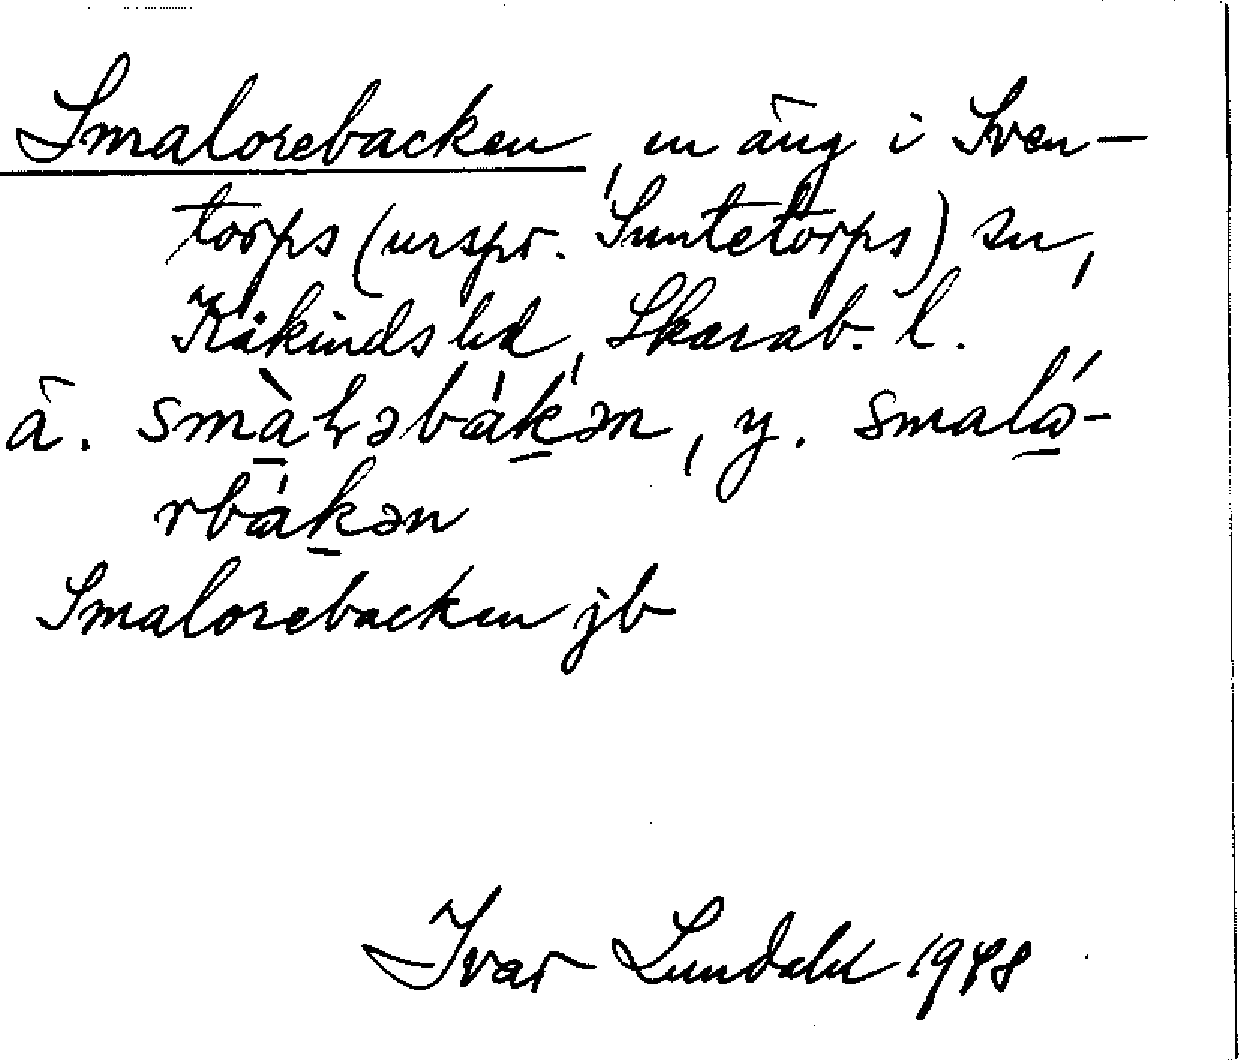 Smalorebacken, en äng i Sven-
torps (urspr. Suntetorps) sn,
Kåkinds hd, Skarab. l.
ä. smàꞎəbákən, y. smaló-
rbákən
Smalorebacken jb
Ivar Lundahl 1948